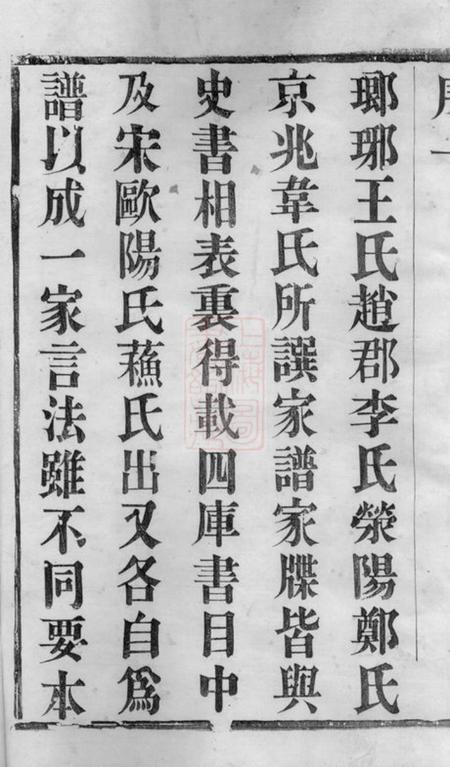 瑯琊王氏趙郡李氏滎陽鄭氏
京兆韋氏所譔家譜家牒皆與
史書相表裏得載四庫書目中
及宋歐陽氏蘓氏出又各自為
譜以成一家言法雖不同要本